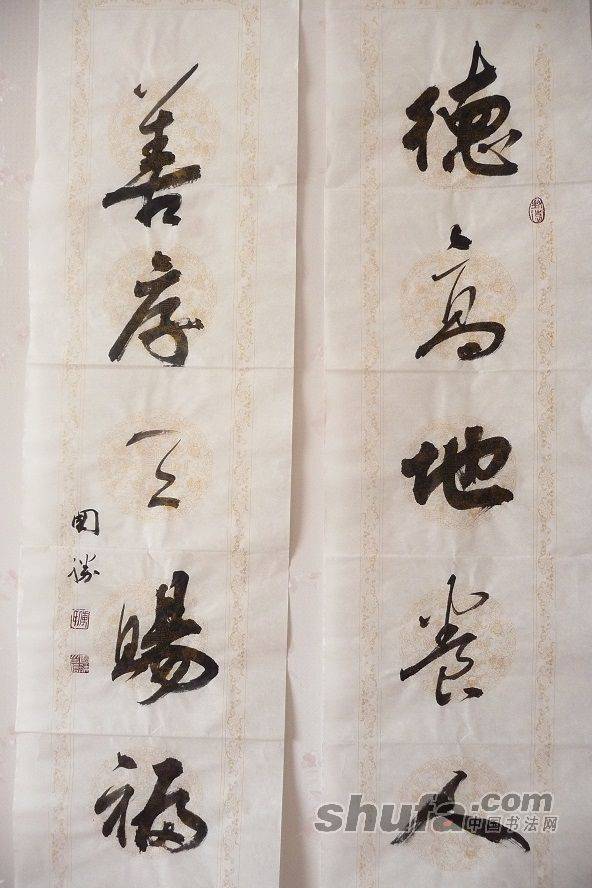 德高地養人
善存天賜福
國勝
shufa.com
中国书法网